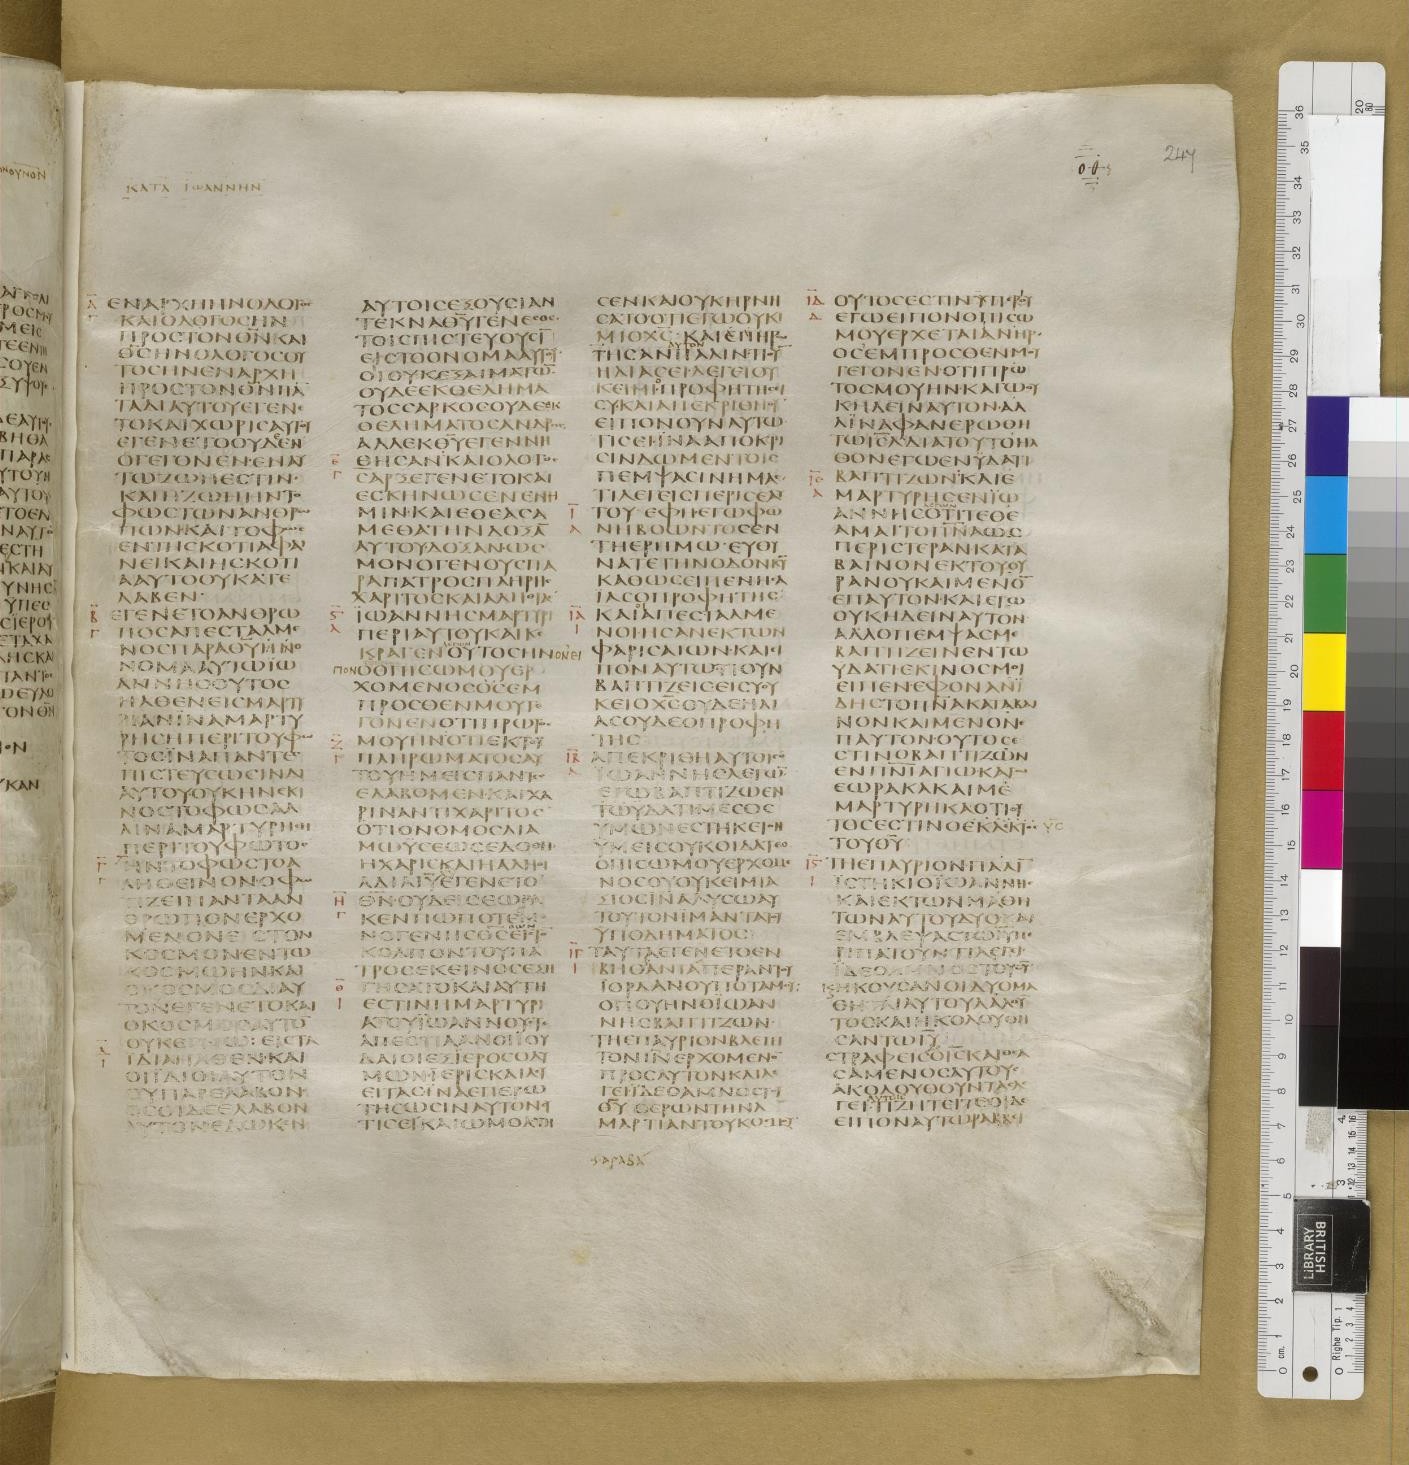 ΚΑΤΑ ΙΩΑΝΝΗΝ
247
ΕΝΑΡΧΗΗΝΟΛΟΓΟϹ
ΚΑΙΟΛΟΓΟϹΗΝ
ΠΡΟϹΤΟΝΘΝΚΑΙ
ΘϹΗΝΟΛΟΓΟϹΟΥ
ΤΟϹΗΝΕΝΑΡΧΗ
ΠΡΟϹΤΟΝΘΝΠΑ
ΤΑΔΙΑΥΤΟΥΕΓΕΝΕ
ΤΟΚΑΙΧΩΡΙϹΑΥΤΟΥ
ΕΓΕΝΕΤΟΟΥΔΕΝ
ΟΓΕΓΟΝΕΝ·ΕΝΑΥ
ΤΩΖΩΗΕϹΤΙΝ·
ΚΑΙΗΖΩΗΗΝΤΟ
ΦΩϹΤΩΝΑΝΘΡΩ
ΠΩΝ·ΚΑΙΤΟΦΩϹ
ΕΝΤΗϹΚΟΤΙΑΦΑΙ
ΝΕΙΚΑΙΗϹΚΟΤΙ
ΑΑΥΤΟΟΥΚΑΤΕ
ΛΑΒΕΝ·
ΕΓΕΝΕΤΟΑΝΘΡΩ
ΠΟϹΑΠΕϹΤΑΛΜΕ
ΝΟϹΠΑΡΑΘΥΗΝΟ
ΝΟΜΑΑΥΤΩΪΩ
ΑΝΝΗϹΟΥΤΟϹ
ΗΛΘΕΝΕΙϹΜΑΡΤΥ
ΡΙΑΝΪΝΑΜΑΡΤΥ
ΡΗϹΗΠΕΡΙΤΟΥΦΩ
ΤΟϹΪΝΑΠΑΝΤΕϹ
ΠΙϹΤΕΥϹΩϹΙΝΔΙ
ΑΥΤΟΥΟΥΚΗΝΕΚΙ
ΝΟϹΤΟΦΩϹΑΛ
ΛΙΝΑΜΑΡΤΥΡΗϹΗ
ΠΕΡΙΤΟΥΦΩΤΟϹ
ΗΝΤΟΦΩϹΤΟΑ
ΛΗΘΕΙΝΟΝΟΦΩ
ΤΙΖΕΙΠΑΝΤΑΑΝ
ΘΡΩΠΟΝΕΡΧΟ
ΜΕΝΟΝΕΙϹΤΟΝ
ΚΟϹΜΟΝΕΝΤΩ
ΚΟϹΜΩΗΝΚΑΙ
ΟΚΟϹΜΟϹΔΙΑΥ
ΤΟΝΕΓΕΝΕΤΟΚΑΙ
ΟΚΟϹΜΟϹΑΥΤΟ
ΟΥΚΕΓΝΩ:ΕΙϹΤΑ
ΪΔΙΑΗΛΘΕΝ·ΚΑΙ
ΟΙΪΔΙΟΙΑΥΤΟΝ
ΟΥΠΑΡΕΛΑΒΟΝ·
ΟϹΟΙΔΕΕΛΑΒΟΝ
ΑΥΤΟΝΕΔΩΚΕΝ
ΑΥΤΟΙϹΕΞΟΥϹΙΑΝ
ΤΕΚΝΑΘΥΓΕΝΕϹΘΕ
ΤΟΙϹΠΙϹΤΕΥΟΥϹΙ
ΕΙϹΤΟΟΝΟΜΑΑΥΤΟΥ
ΟΙΟΥΚΕΞΑΙΜΑΤΩ
ΟΥΔΕΕΚΘΕΛΗΜΑ
ΤΟϹϹΑΡΚΟϹΟΥΔΕΕΚ
ΘΕΛΗΜΑΤΟϹΑΝΔΡΟϹ
ΑΛΛΕΚΘΥΕΓΕΝΝΗ
ΘΗϹΑΝ·ΚΑΙΟΛΟΓΟϹ
ϹΑΡΞΕΓΕΝΕΤΟΚΑΙ
ΕϹΚΗΝΩϹΕΝΕΝΗ
ΜΙΝ·ΚΑΙΕΘΕΑϹΑ
ΜΕΘΑΤΗΝΔΟΞΑ
ΑΥΤΟΥΔΟΞΑΝΩϹ
ΜΟΝΟΓΕΝΟΥϹΠΑ
ΡΑΠΑΤΡΟϹΠΛΗΡΗϹ
ΧΑΡΙΤΟϹΚΑΙΑΛΗΘΙΑϹ
ΪΩΑΝΝΗϹΜΑΡΤΥΡΙ
ΠΕΡΙΑΥΤΟΥΚΑΙΚΕ
ΚΡΑΓΕΝΟΥΤΟϹΗΝΟΝΕΙ
ΠΟΝΟΟΠΙϹΩΜΟΥΕΡ
ΧΟΜΕΝΟϹΟϹΕΜ
ΠΡΟϹΘΕΝΜΟΥΓΕ
ΓΟΝΕΝΟΤΙΠΡΩΤΟϹ
ΜΟΥΗΝΟΤΙΕΚΤΟΥ
ΠΛΗΡΩΜΑΤΟϹΑΥ
ΤΟΥΗΜΕΙϹΠΑΝΤΕϹ
ΕΛΑΒΟΜΕΝ·ΚΑΙΧΑ
ΡΙΝΑΝΤΙΧΑΡΙΤΟϹ
ΟΤΙΟΝΟΜΟϹΔΙΑ
ΜΩΫϹΕΩϹΕΔΟΘΗ
ΗΧΑΡΙϹΚΑΙΗΑΛΗΘΙ
ΑΔΙΑΙΥΕΓΕΝΕΤΟ
ΘΝ·ΟΥΔΕΙϹΕΩΡΑ
ΚΕΝΠΩΠΟΤΕΜΟ
ΝΟΓΕΝΗϹΘϹΕΙϹΤΟΝ
ΚΟΛΠΟΝΤΟΥΠΑ
ΤΡΟϹΕΚΕΙΝΟϹΕΞΗ
ΓΗϹΑΤΟΚΑΙΑΥΤΗ
ΕϹΤΙΝΗΜΑΡΤΥΡΙ
ΑΤΟΥΪΩΑΝΝΟΥΟΤΕ
ΑΠΕϹΤΙΛΑΝΟΙΪΟΥ
ΔΑΙΟΙΕΞΪΕΡΟϹΟΛΥ
ΜΩΝ·ΪΕΡΙϹΚΑΙΛΕΥ
ΕΙΤΑϹΪΝΑΕΠΕΡΩ
ΤΗϹΩϹΙΝΑΥΤΟΝϹΥ
ΤΙϹΕΙ·ΚΑΙΩΜΟΛΟΓΗ
ϹΕΝΚΑΙΟΥΚΗΡΝΗ
ϹΑΤΟΟΤΙΕΓΩΟΥΚΙ
ΜΙΟΧϹ·ΚΑΙΕΠΗΡΩ
ΤΗϹΑΝΠΑΛΙΝ·ΤΙϹΥ
ΗΛΙΑϹΕΙ·ΛΕΓΕΙΟΥ
ΚΕΙΜΙ·ΠΡΟΦΗΤΗϹΕΙ
ϹΥΚΑΙΑΠΕΚΡΙΘΗ·ΟΥ
ΕΙΠΟΝΟΥΝΑΥΤΩ
ΤΙϹΕΙΪΝΑΑΠΟΚΡΙ
ϹΙΝΔΩΜΕΝΤΟΙϹ
ΠΕΜΨΑϹΙΝΗΜΑϹ
ΤΙΛΕΓΕΙϹΠΕΡΙϹΕΑΥ
ΤΟΥ·ΕΦΗΕΓΩΦΩ
ΝΗΒΟΩΝΤΟϹΕΝ
ΤΗΕΡΗΜΩ·ΕΥΘΥ
ΝΑΤΕΤΗΝΟΔΟΝΚΥ
ΚΑΘΩϹΕΙΠΕΝΗϹΑ
ΙΑϹΟΠΡΟΦΗΤΗϹ
ΚΑΙΑΠΕϹΤΑΛΜΕ
ΝΟΙΗϹΑΝΕΚΤΩΝ
ΦΑΡΙϹΑΙΩΝ·ΚΑΙΕΙ
ΠΟΝΑΥΤΩΤΙΟΥΝ
ΒΑΠΤΙΖΕΙϹΕΙϹΥΟΥ
ΚΕΙΟΧϹΟΥΔΕΗΛΙ
ΑϹΟΥΔΕΟΠΡΟΦΗ
ΤΗϹ
ΑΠΕΚΡΙΘΗΑΥΤΟΙϹΟ
ΪΩΑΝΝΗϹΛΕΓΩ
ΕΓΩΒΑΠΤΙΖΩΕΝ
ΤΩΥΔΑΤΙΜΕϹΟϹ
ΥΜΩΝΕϹΤΗΚΕΙΟΝ
ΥΜΕΙϹΟΥΚΟΙΔΑΤΕΟ
ΟΠΙϹΩΜΟΥΕΡΧΟΜΕ
ΝΟϹΟΥΟΥΚΕΙΜΙΑ
ΞΙΟϹΪΝΑΛΥϹΩΑΥ
ΤΟΥΤΟΝΪΜΑΝΤΑΤΟΥ
ΥΠΟΔΗΜΑΤΟϹ
ΤΑΥΤΑΕΓΕΝΕΤΟΕΝ
ΒΗΘΑΝΙΑΠΕΡΑΝΤΟΥ
ΪΟΡΔΑΝΟΥΠΟΤΑΜΟΥ:
ΟΠΟΥΗΝΟΪΩΑΝ
ΝΗϹΒΑΠΤΙΖΩΝ·
ΤΗΕΠΑΥΡΙΟΝΒΛΕΠΙ
ΤΟΝΙΝΕΡΧΟΜΕΝΟ
ΠΡΟϹΑΥΤΟΝΚΑΙΛΕ
ΓΕΙΪΔΕΟΑΜΝΟϹΤΟΥ
ΘΥΟΕΡΩΝΤΗΝΑ
ΜΑΡΤΙΑΝΤΟΥΚΟϹΜΟΥ
ΟΥΤΟϹΕϹΤΙΝΥΠΕΡΟΥ
ΕΓΩΕΙΠΟΝΟΠΙϹΩ
ΜΟΥΕΡΧΕΤΑΙΑΝΗΡ
ΟϹΕΜΠΡΟϹΘΕΝΜΟΥ
ΓΕΓΟΝΕΝΟΤΙΠΡΩ
ΤΟϹΜΟΥΗΝ·ΚΑΓΩΟΥ
ΚΗΔΕΙΝΑΥΤΟΝ·ΑΛ
ΛΪΝΑΦΑΝΕΡΩΘΗ
ΤΩΙϹΛΔΙΑΤΟΥΤΟΗΛ
ΘΟΝΕΓΩΕΝΫΔΑΤΙ
ΒΑΠΤΙΖΩΝ·ΚΑΙΕ
ΜΑΡΤΥΡΗϹΕΝΪΩ
ΑΝΝΗϹΟΤΙΤΕΘΕ
ΑΜΑΙΤΟΠΝΑΩϹ
ΠΕΡΙϹΤΕΡΑΝΚΑΤΑ
ΒΑΙΝΟΝΕΚΤΟΥΟΥ
ΡΑΝΟΥΚΑΙΜΕΝΟ
ΕΠΑΥΤΟΝ·ΚΑΙΕΓΩ
ΟΥΚΗΔΕΙΝΑΥΤΟΝ·
ΑΛΛΟΠΕΜΨΑϹΜΕ
ΒΑΠΤΙΖΕΙΝΕΝΤΩ
ΥΔΑΤΙΕΚΙΝΟϹΜΟΙ
ΕΙΠΕΝΕΦΟΝΑΝΪ
ΔΗϹΤΟΠΝΑΚΑΤΑΒΑΙ
ΝΟΝΚΑΙΜΕΝΟΝΕ
ΠΑΥΤΟΝ·ΟΥΤΟϹΕ
ϹΤΙΝΟΒΑΠΤΙΖΩΝ
ΕΝΠΝΙΑΓΙΩΚΑΓΩ
ΕΩΡΑΚΑΚΑΙΜΕ
ΜΑΡΤΥΡΗΚΑΟΤΙΟΥ
ΤΟϹΕϹΤΙΝΟΕΚΛΕΚΤΟϹ
ΤΟΥΘΥ
ΤΗΕΠΑΥΡΙΟΝΠΑΛΙ
ΪϹΤΗΚΙΟΪΩΑΝΝΗϹ
ΚΑΙΕΚΤΩΝΜΑΘΗ
ΤΩΝΑΥΤΟΥΔΥΟΚΑΙ
ΕΜΒΛΕΨΑϹΤΩΙΥΠΕ
ΡΙΠΑΤΟΥΝΤΙΛΕΓΕΙ
ΪΔΕΟΑΜΝΟϹΤΟΥΘΥ
ΗΚΟΥϹΑΝΟΙΔΥΟΜΑ
ΘΗΤΑΙΑΥΤΟΥΛΑΛΟΥ
ΤΟϹΚΑΙΗΚΟΛΟΥΘΗ
ϹΑΝΤΩΙΥ
ϹΤΡΑΦΕΙϹΟΙϹΚΑΙΘΕΑ
ϹΑΜΕΝΟϹΑΥΤΟΥϹ
ΑΚΟΛΟΥΘΟΥΝΤΑϹΛΕ
ΓΕΙΤΙΖΗΤΕΙΤΕΟΙΔΕ
ΕΙΠΟΝΑΥΤΩΡΑΒΒΙ